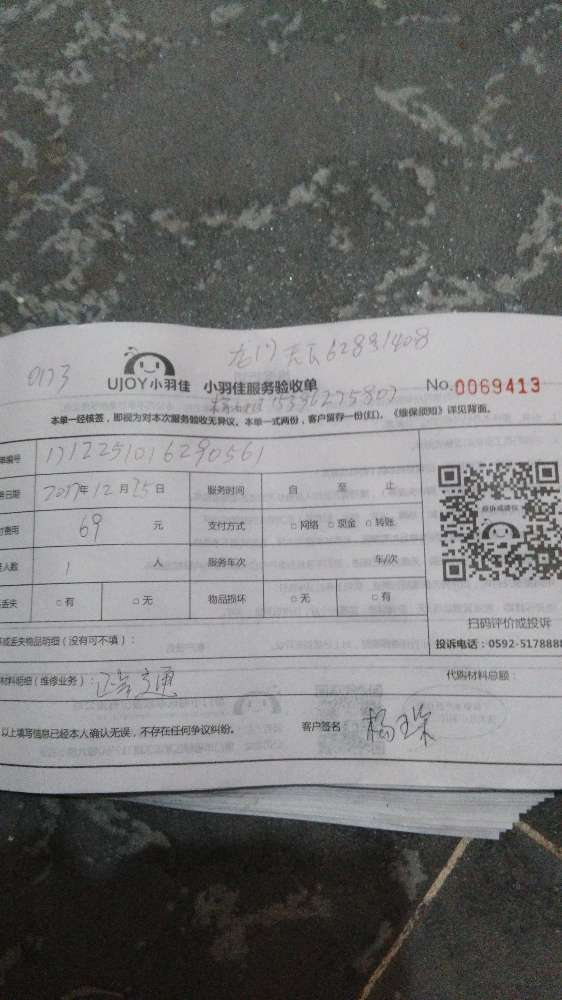 0173
龙门天下62891408
UJOY小羽佳 小羽佳服务验收单 No.0069413
本单一经核签，即视为对本次服务验收无异议。本单一式两份，客户留存一份(红)。《维保须知》详见背面。
单编号 1712251016290561
务日期 2017年12月25日 服务时间 自 至 止
付费用 69 元 支付方式 □网络 □现金 □转账
人数 1 人 服务车次 车/次
丢失 □有 □无 物品损坏 □无 □有
扫码评价或投诉
或丢失物品明细（没有可不填）：
投诉电话：0592-5178888
材料明细（维修业务）：
代购材料总额：
以上填写信息已经本人确认无误，不存在任何争议纠纷。 客户签名